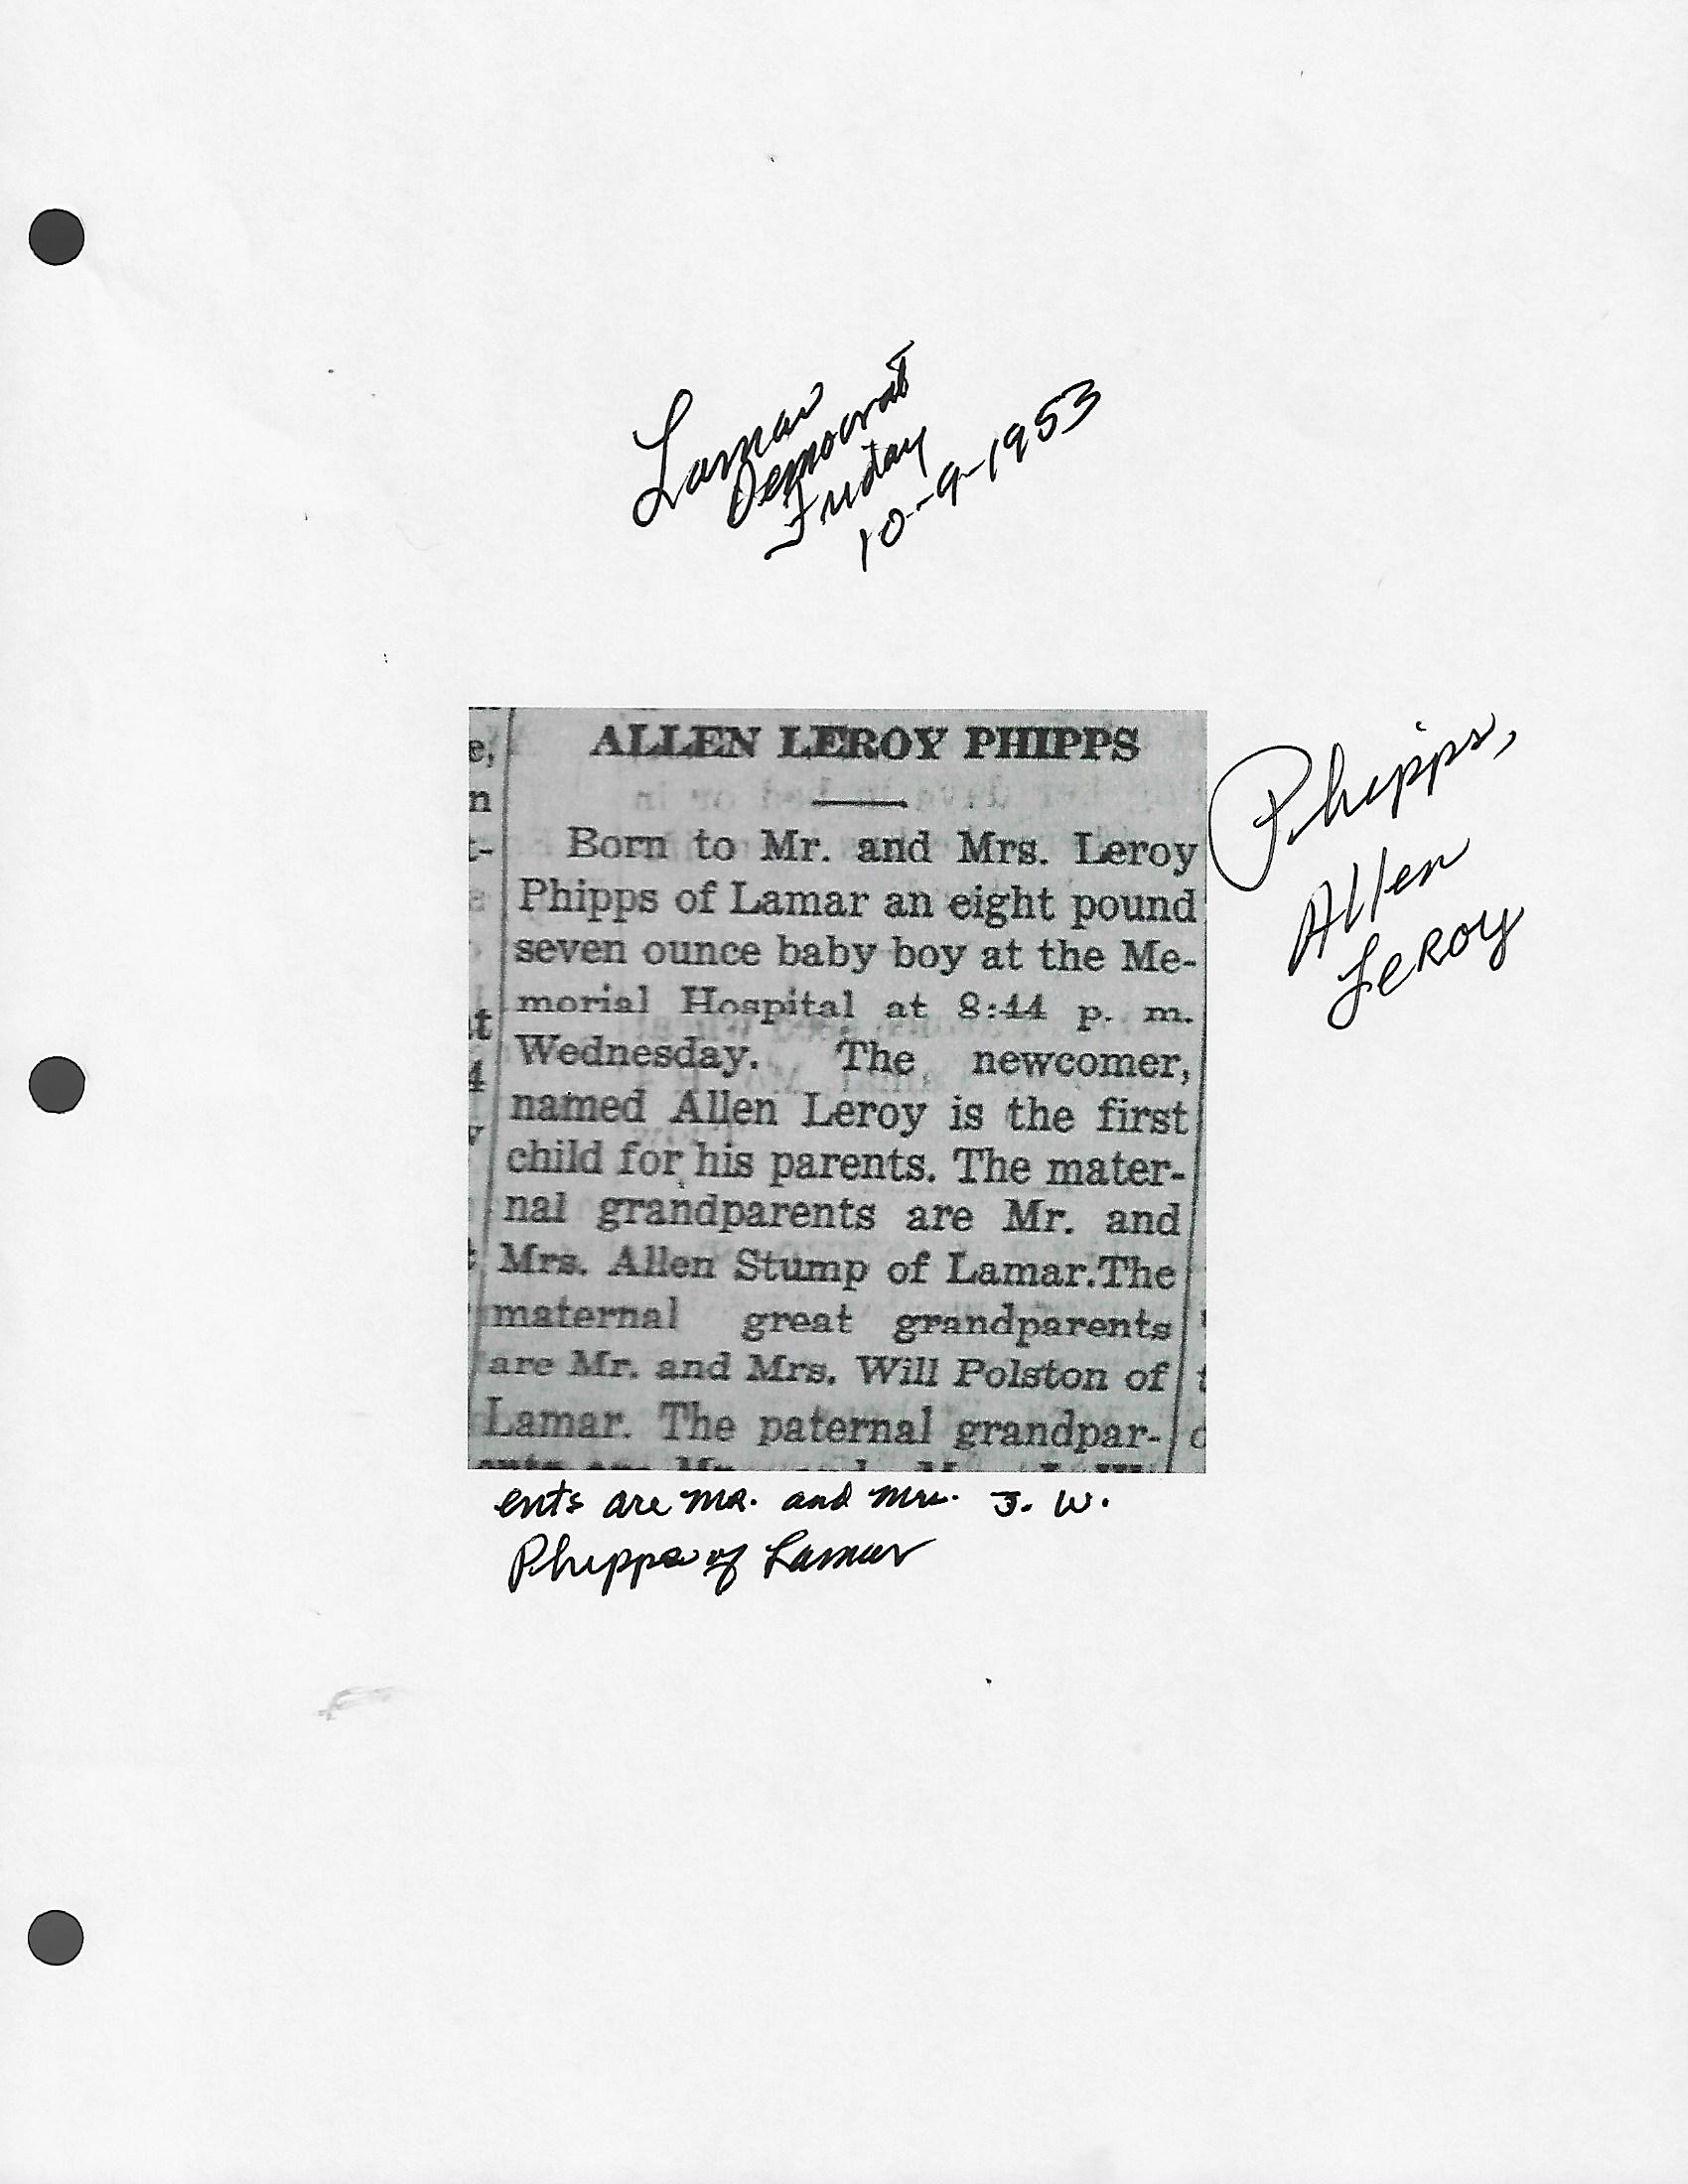 Lamar
Democrat
Friday
10-9-1953
ALLEN LEROY PHIPPS
Born to Mr. and Mrs. Leroy
Phipps of Lamar an eight pound
seven ounce baby boy at the Me-
morial Hospital at 8:44 p. m.
Wednesday. The newcomer,
named Allen Leroy is the first
child for his parents. The mater-
nal grandparents are Mr. and
Mrs. Allen Stump of Lamar.The
maternal great grandparents
are Mr. and Mrs. Will Polston of
Lamar. The paternal grandpar-
ents are Mr. and Mrs. J. W.
Phipps of Lamar
Phipps,
Allen
LeRoy